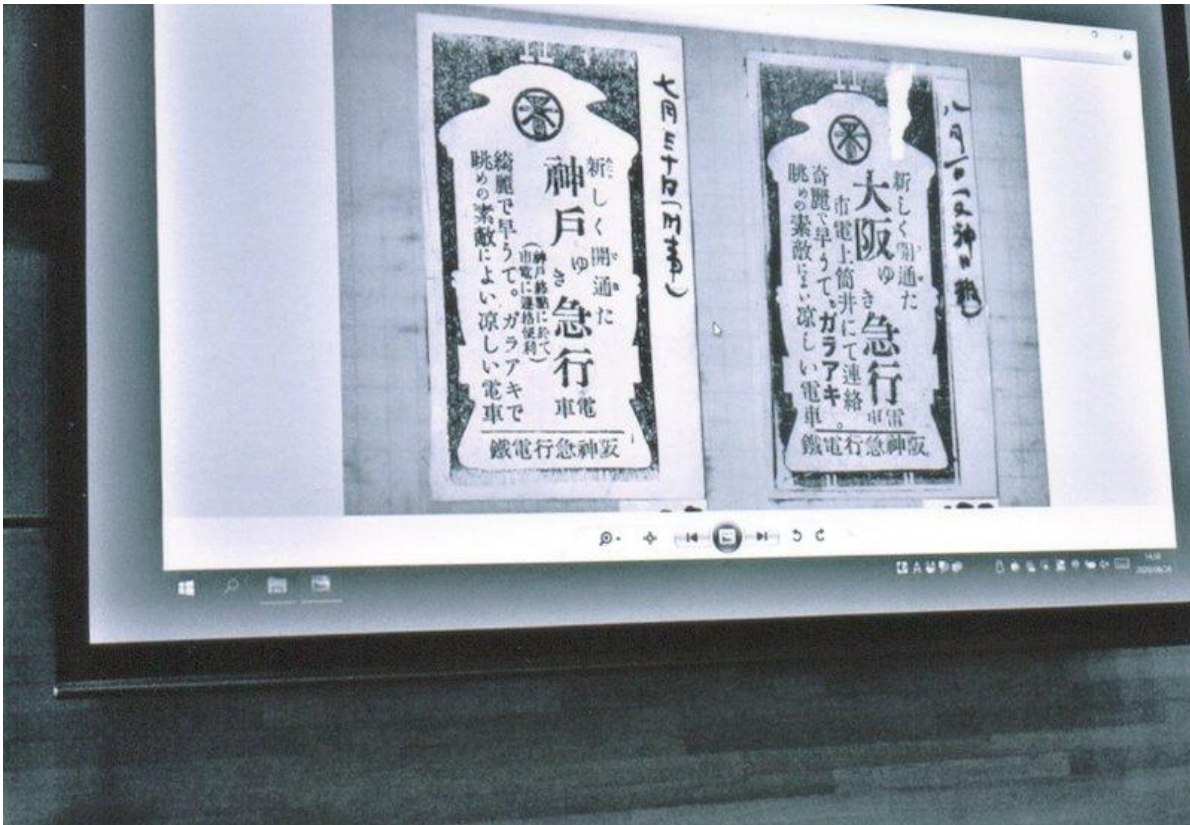 七月三十日
新しく開通た
神戸ゆき急行電車
(神戸終點に於て
市電に連絡便利)
綺麗で早うて。ガラアキで
眺めの素敵によい涼しい電車
阪神急行電鐵
八月一日
新しく開通た
大阪ゆき急行電車
市電上筒井にて連絡。
奇麗で早うて。ガラアキ
眺めの素敵によい涼しい電車
阪神急行電鐵